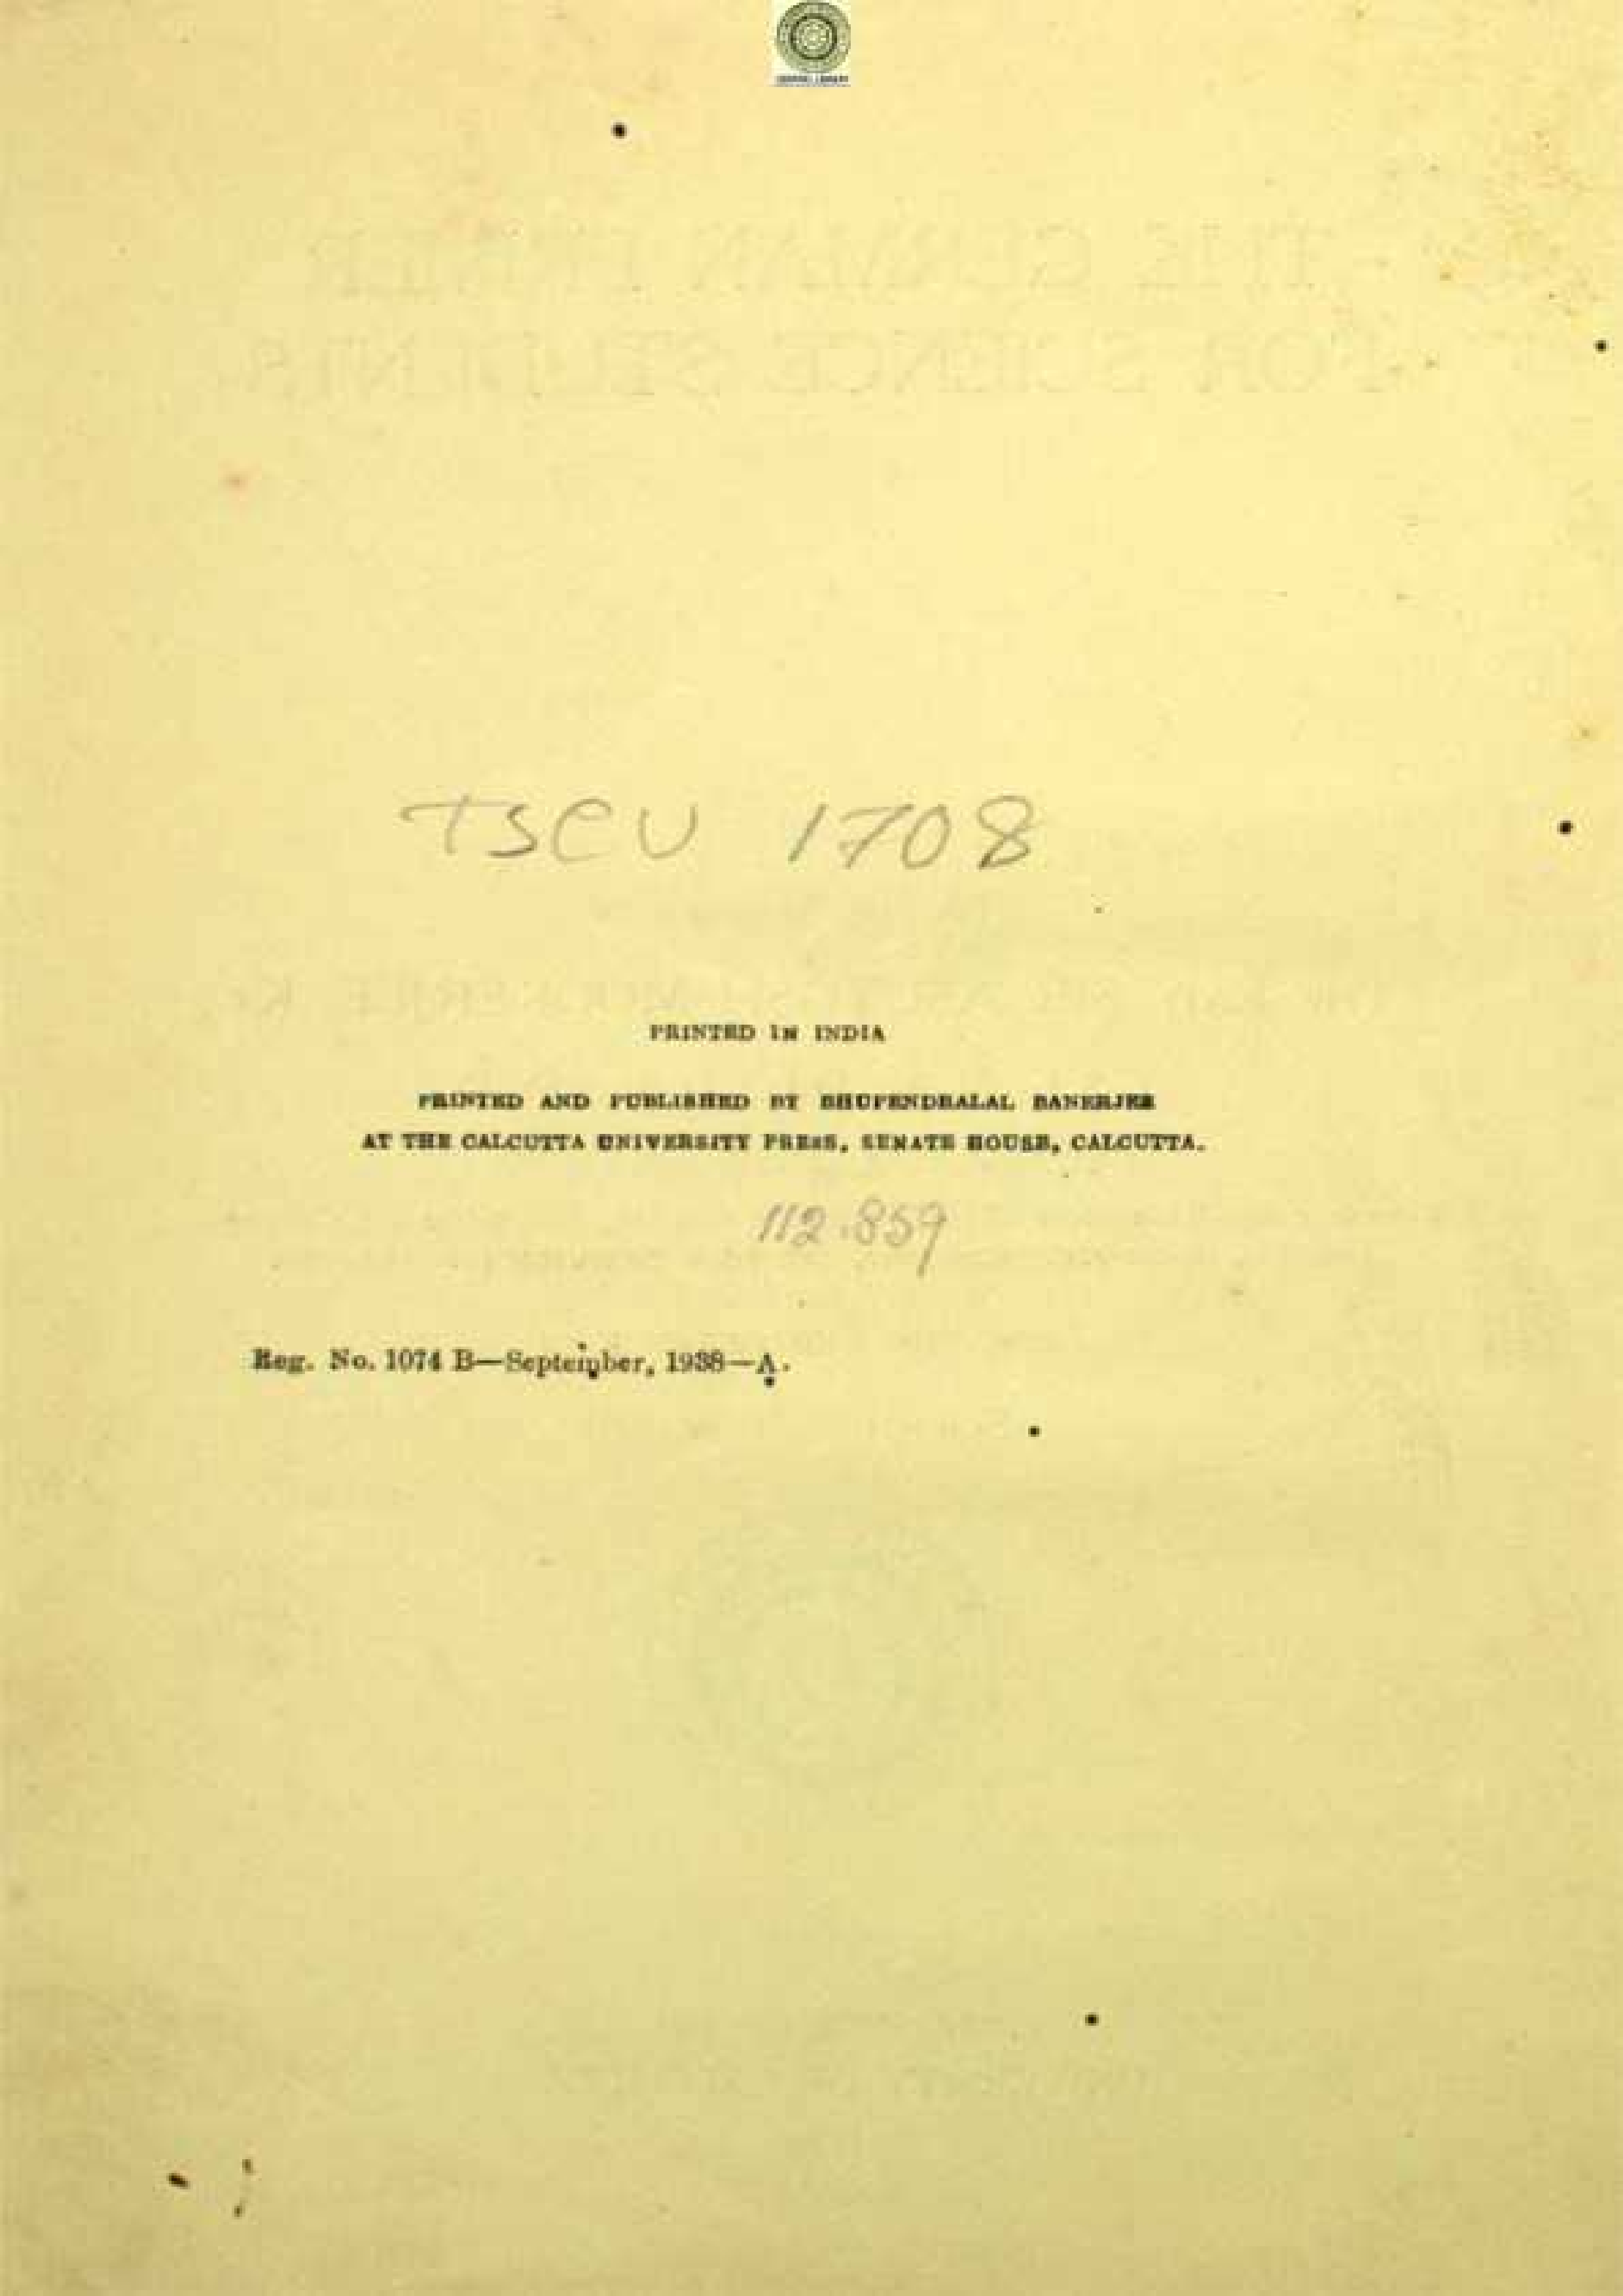 CENTRAL LIBRARY
TSCU 1708
PRINTED IN INDIA
PRINTED AND PUBLISHED BY BHUPENDRALAL BANERJEE
AT THE CALCUTTA UNIVERSITY PRESS, SENATE HOUSE, CALCUTTA.
112.859
Reg. No. 1074 B—September, 1938—A.